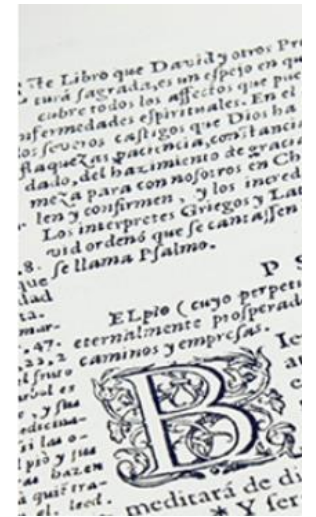 Te Libro que David y otros Pr
turá sagrada, es un espejo en q
cubre todos los affectos que pue
nfermedades espirituales. En el
los severos castigos que Dios ha
flaquezas, paciencia, constancia
dado, del hazimiento de gracia
meza para con nosotros en Ch
len y confirmen, y los incred
Los interpretes Griegos y Lat
vid ordenó que se cantassen
se llama Psalmo.
P S
ELpio (cuyo perpeti
eternalmente prosperad
caminos y empresas.
.8.
que
dad
ta.
mar-
.47.
23.2
fruto
arbol es
, y sus
edicina-
si las o-
pio y sus
as hazen
à quie tra-
el. leed.
B
Ie
meditará de di
* Y ser